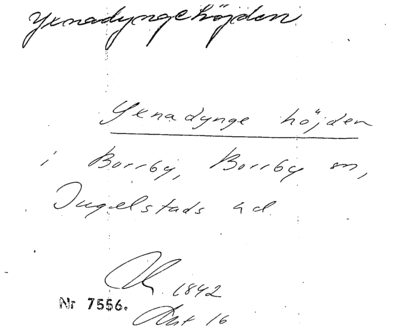 Yxnadyngehöjden
Yxnadynge höjden
i Borrby, Borrby sn,
Ingelstads hd
1842
Nr 7556.
Akt 16